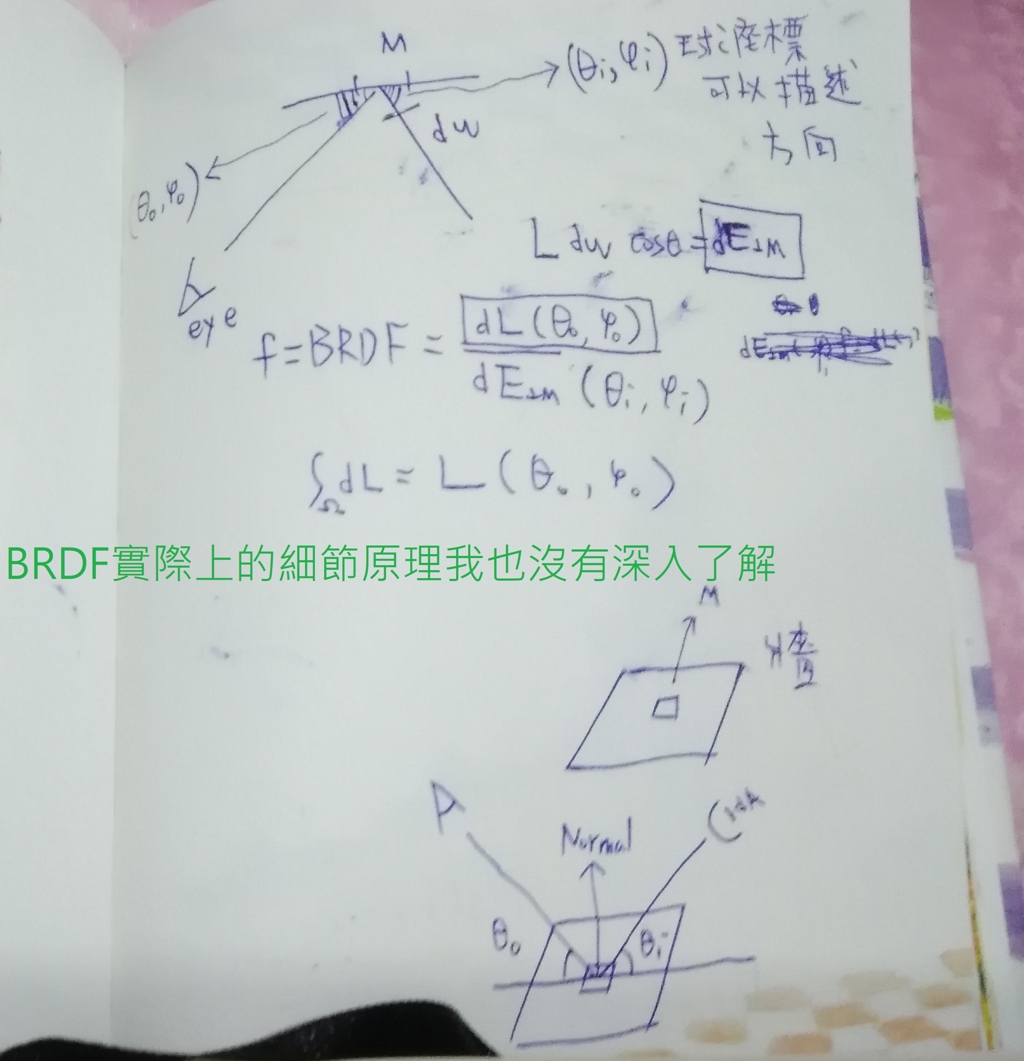 M
(θi, φi) 球座標
可以描述
方向
dw
(θo, φo)
eye
L dw cosθ = dE⊥M
f = BRDF = dL(θo, φo) / dE⊥M (θi, φi)
dE⊥M
∫Ω dL = L(θo, φo)
BRDF實際上的細節原理我也沒有深入了解
M
Normal
dA
θo
θi